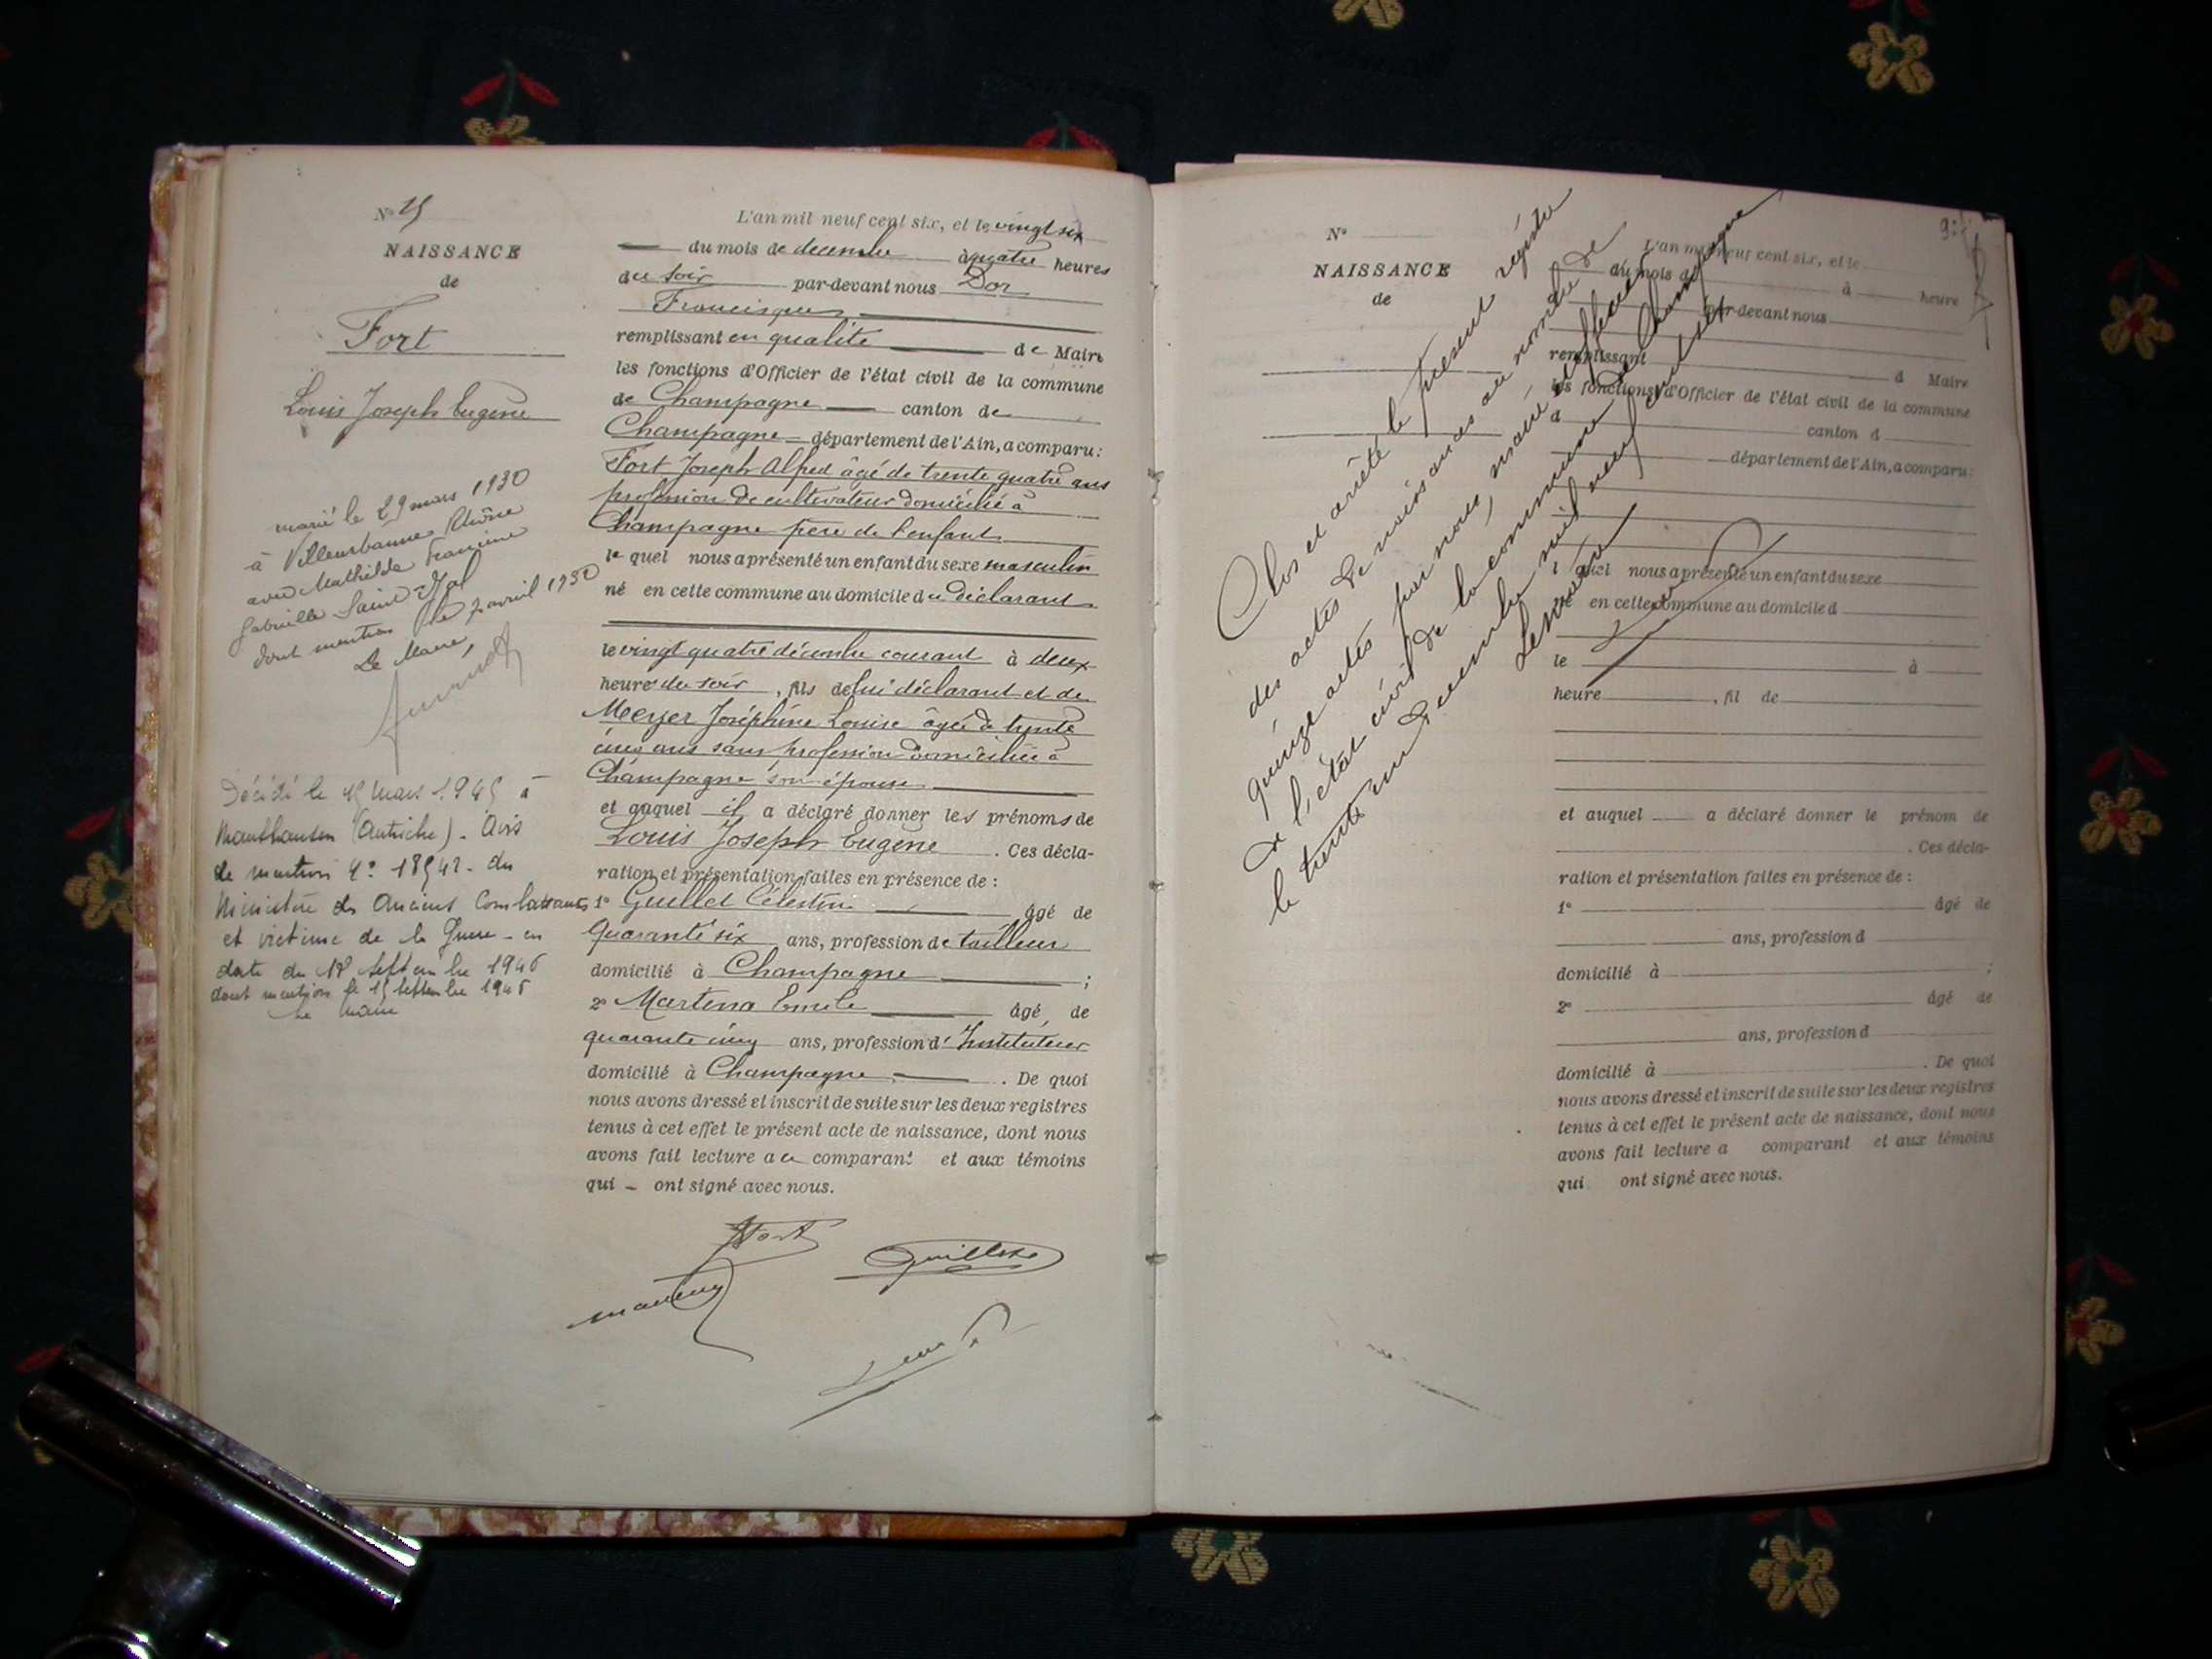 Nº 15
NAISSANCE
de
Fort
Louis Joseph Eugène
marié le 29 mars 1930
à Villeurbanne Rhône
avec Mathilde Francine
Gabrielle Saint
dont mention le 2 avril 1930
Le Maire,
Décédé le 15 mars 1945 à
Mauthausen (Autriche). Avis
de mention nº 18542. du
Ministère des Anciens Combattants
et victime de la Guerre - en
date du 12 septembre 1946
dont mention le 15 septembre 1946
Le Maire
L'an mil neuf cent six, et le vingt six
du mois de decembre à quatre heures
du soir par-devant nous Dor
Francisque
remplissant en qualité de Maire
les fonctions d'Officier de l'état civil de la commune
de Champagne canton de
Champagne département de l'Ain, a comparu :
Fort Joseph Alfred âgé de trente quatre ans
profession de cultivateur domicilié à
Champagne père de l'enfant
le quel nous a présenté un enfant du sexe masculin
né en cette commune au domicile du déclarant
le vingt quatre décembre courant à deux
heure du soir, fils de lui déclarant et de
Meyer Joséphine Louise âgée de trente
cinq ans sans profession domiciliée à
Champagne son épouse
et auquel il a déclaré donner les prénoms de
Louis Joseph Eugène. Ces décla-
ration et présentation faites en présence de :
1º Guillet Célestin âgé de
Quarante six ans, profession de tailleur
domicilié à Champagne ;
2º Martena Emile âgé de
quarante cinq ans, profession d'Instituteur
domicilié à Champagne. De quoi
nous avons dressé et inscrit de suite sur les deux registres
tenus à cet effet le présent acte de naissance, dont nous
avons fait lecture au comparant et aux témoins
qui ont signé avec nous.
Fort
Guillet
Nº
NAISSANCE
de
Clos et arrêté le présent régistre
des actes de naissances au nombre de
quinze actes par nous, maire officier
de l'état civil de la commune de Champagne
le trente un Decembre mil neuf cent six
Le Maire
L'an mil neuf cent six, et le
du mois d à heure
par-devant nous
remplissant d Maire
les fonctions d'Officier de l'état civil de la commune
d canton d
département de l'Ain, a comparu :
l quel nous a présenté un enfant du sexe
né en cette commune au domicile d
le à
heure , fil de
et auquel a déclaré donner le prénom de
. Ces décla-
ration et présentation faites en présence de :
1º âgé de
ans, profession d
domicilié à ;
2º âgé de
ans, profession d
domicilié à . De quoi
nous avons dressé et inscrit de suite sur les deux registres
tenus à cet effet le présent acte de naissance, dont nous
avons fait lecture a comparant et aux témoins
qui ont signé avec nous.